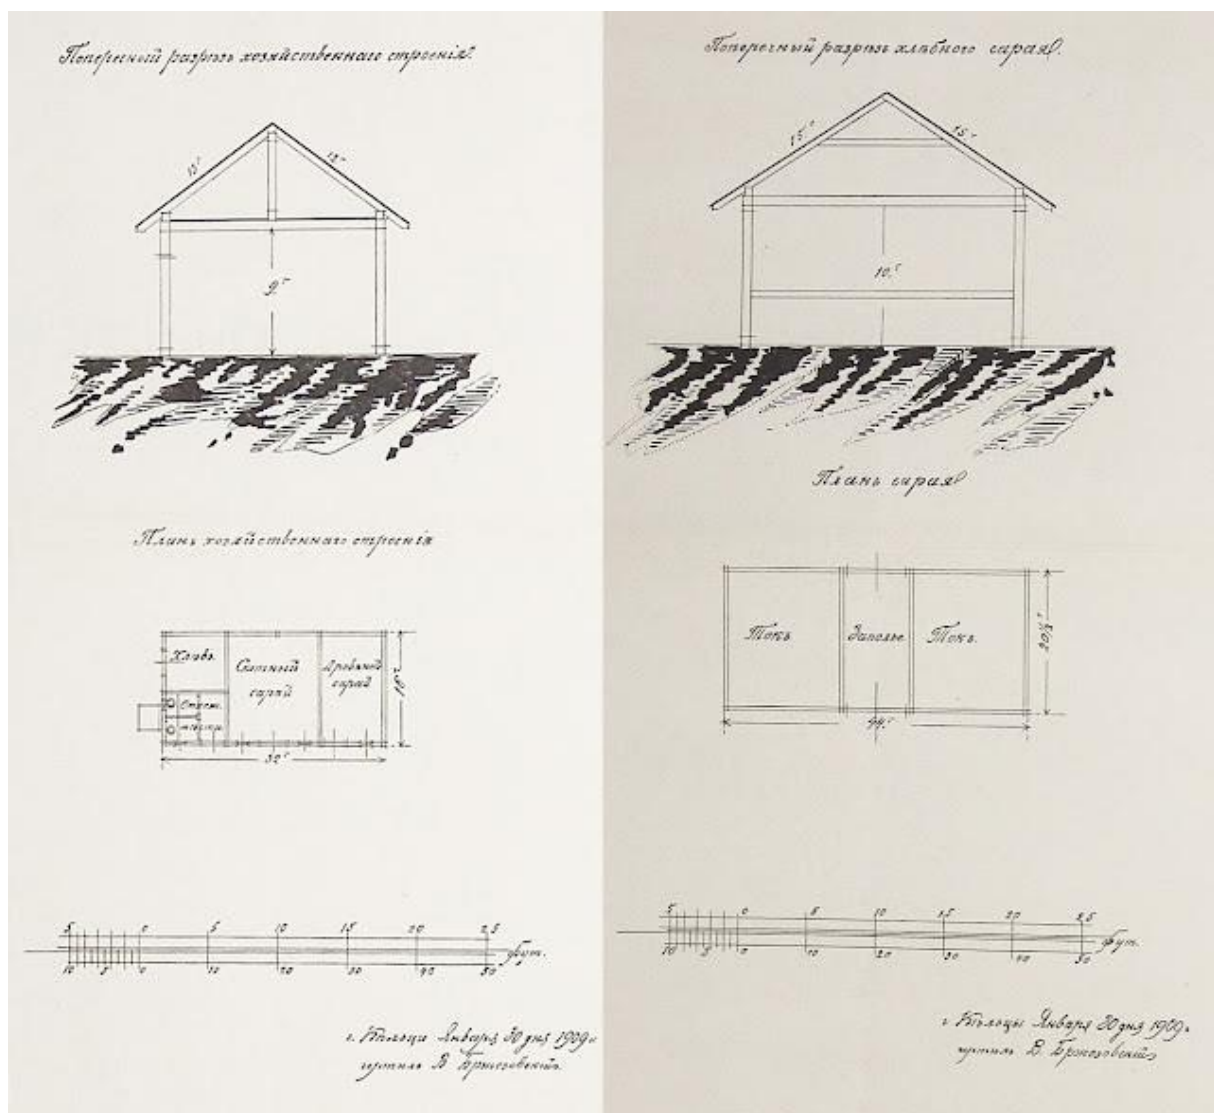 Поперечный разрѣзъ хозяйственнаго строенія.
13'
13'
9'
Планъ хозяйственнаго строенія
Хлѣвъ
Скотный
сарай
Дровяной
сарай
32'
5 0 5 10 15 20 25
Фут.
10 5 0 10 20 30 40 50
г. Кѣльцы Января 30 дня 1909 г.
чертилъ В. Бржозовскій
Поперечный разрѣзъ хлѣбного сарая.
15'
15'
10'
Планъ сарая
Токъ
Заполье
Токъ.
20½'
44'
5 0 5 10 15 20 25
Фут.
10 5 0 10 20 30 40 50
г. Кѣльцы Января 30 дня 1909 г.
чертилъ В. Бржозовскій